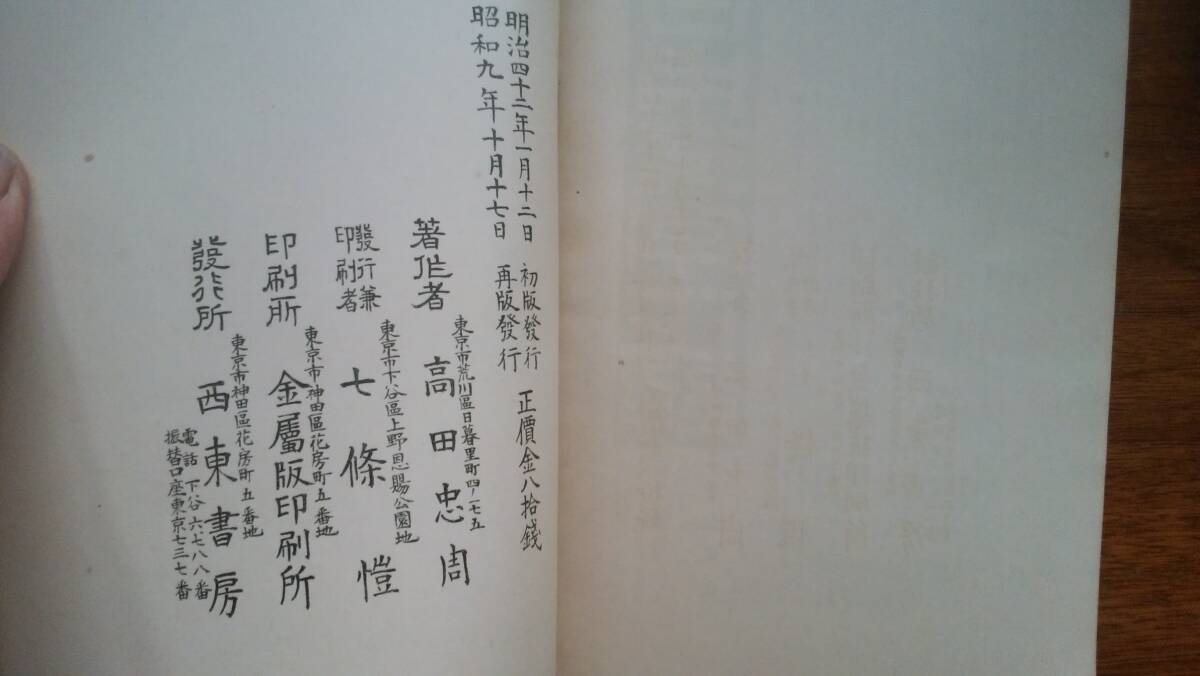 明治四十二年一月十二日 初版發行 正價金八拾錢
昭和九年十月十七日 再版發行
東京市荒川區日暮里町四ノ一七五
著作者 高田忠周
東京市下谷區上野恩賜公園地
發行兼印刷者 七條愷
東京市神田區花房町五番地
印刷所 金屬版印刷所
東京市神田區花房町五番地
發行所 西東書房
電話下谷六七八八番
振替口座東京七三七番